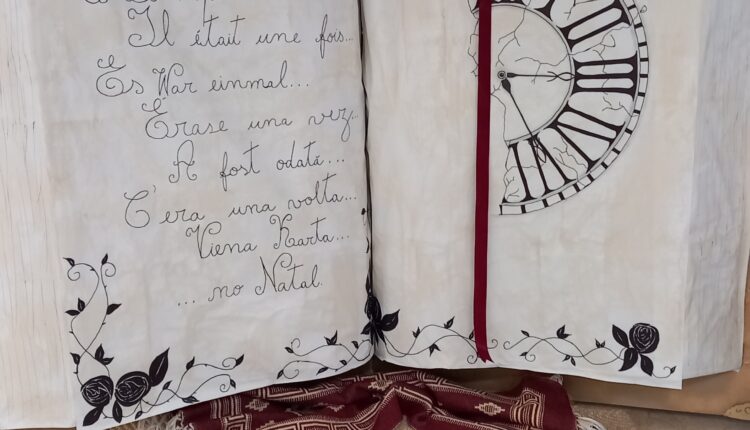 Il était une fois...
Es War einmal...
Érase una vez...
A fost odată...
C'era una volta...
Viena Karta...
... no Natal.